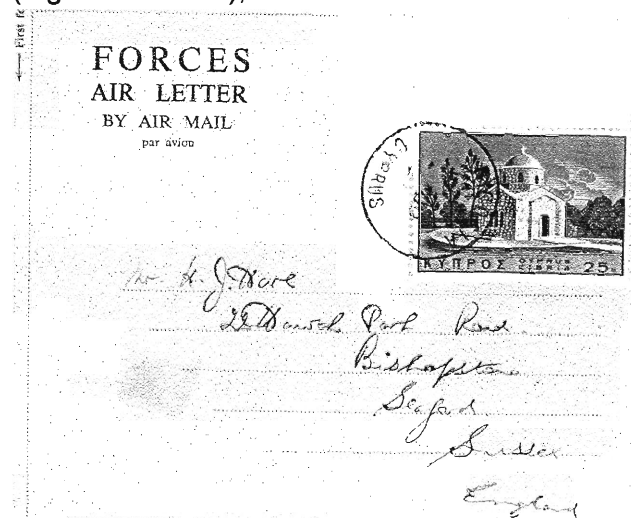 First
FORCES
AIR LETTER
BY AIR MAIL
par avion
CYPRUS
ΚΥΠΡΟΣ CYPRUS KIBRIS 25
Mr. H. J. Hare
Park Road
Bishopstone
Seaford
Sussex
England